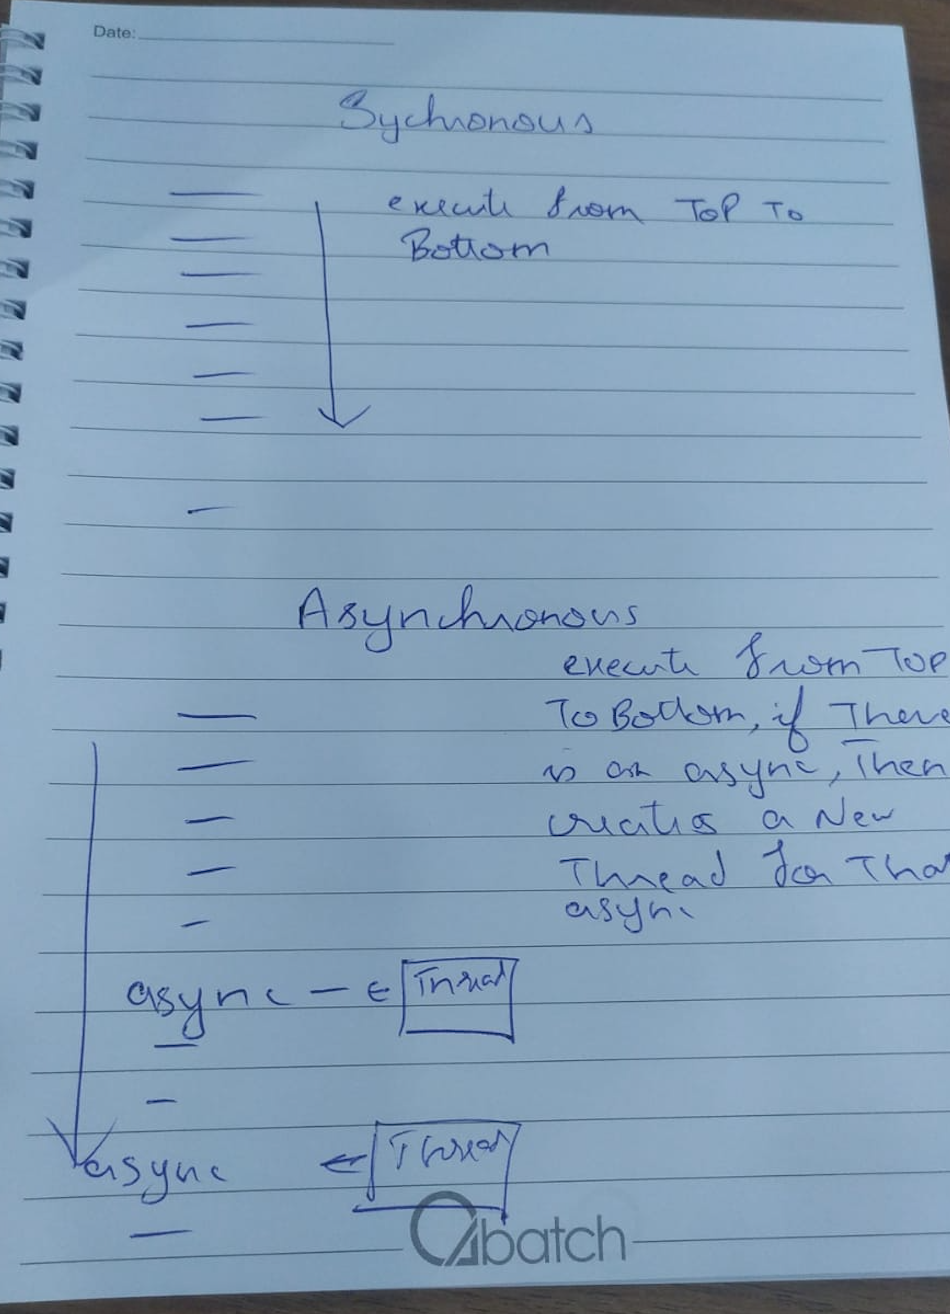 Date:
Sychronous
execute from ToP To
Bottom
Asynchronous
execute from Top
To Bottom, if There
is an async, Then
creates a New
Thread for That
async
async - Thread
async Thread
Qbatch